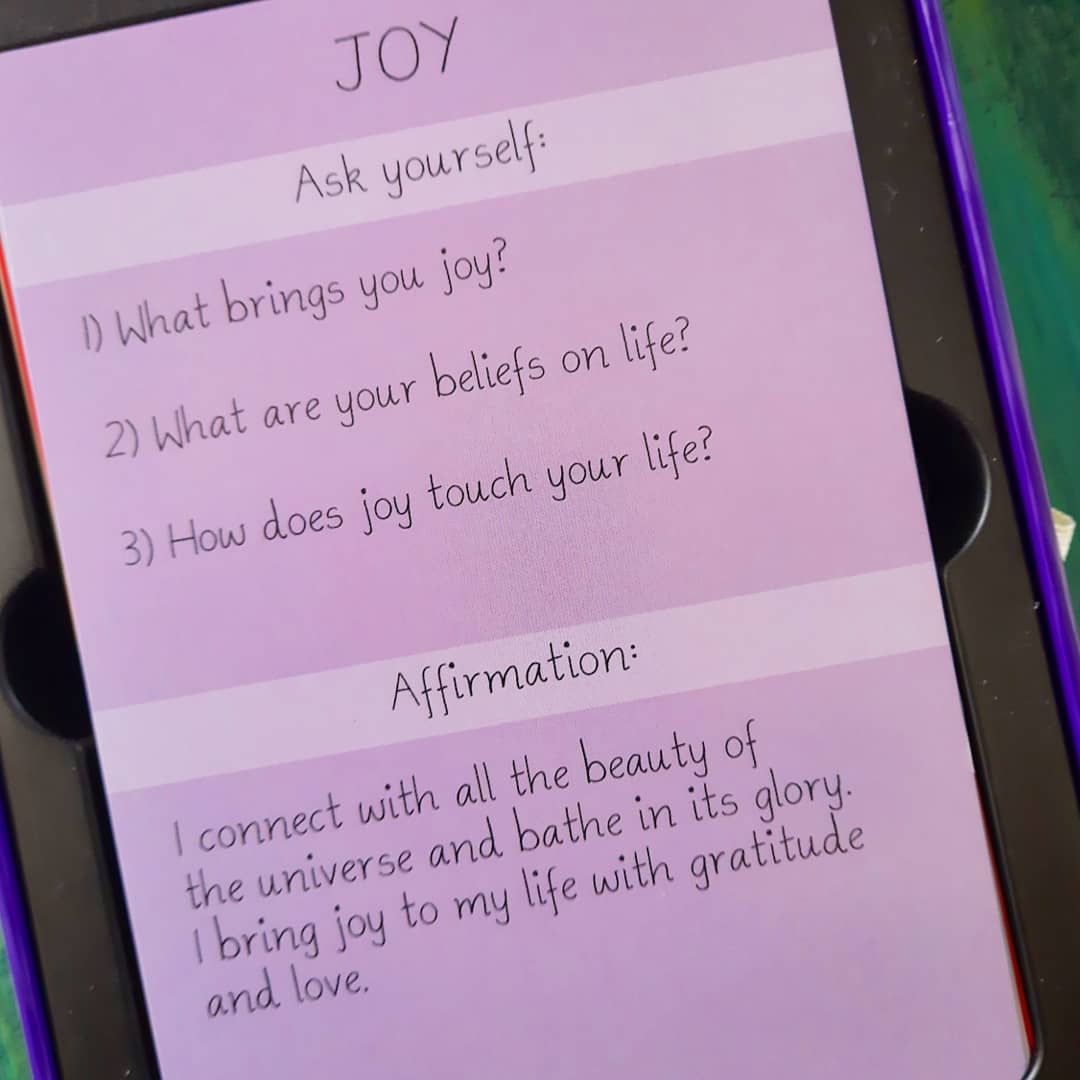 JOY
Ask yourself:
1) What brings you joy?
2) What are your beliefs on life?
3) How does joy touch your life?
Affirmation:
I connect with all the beauty of
the universe and bathe in its glory.
I bring joy to my life with gratitude
and love.